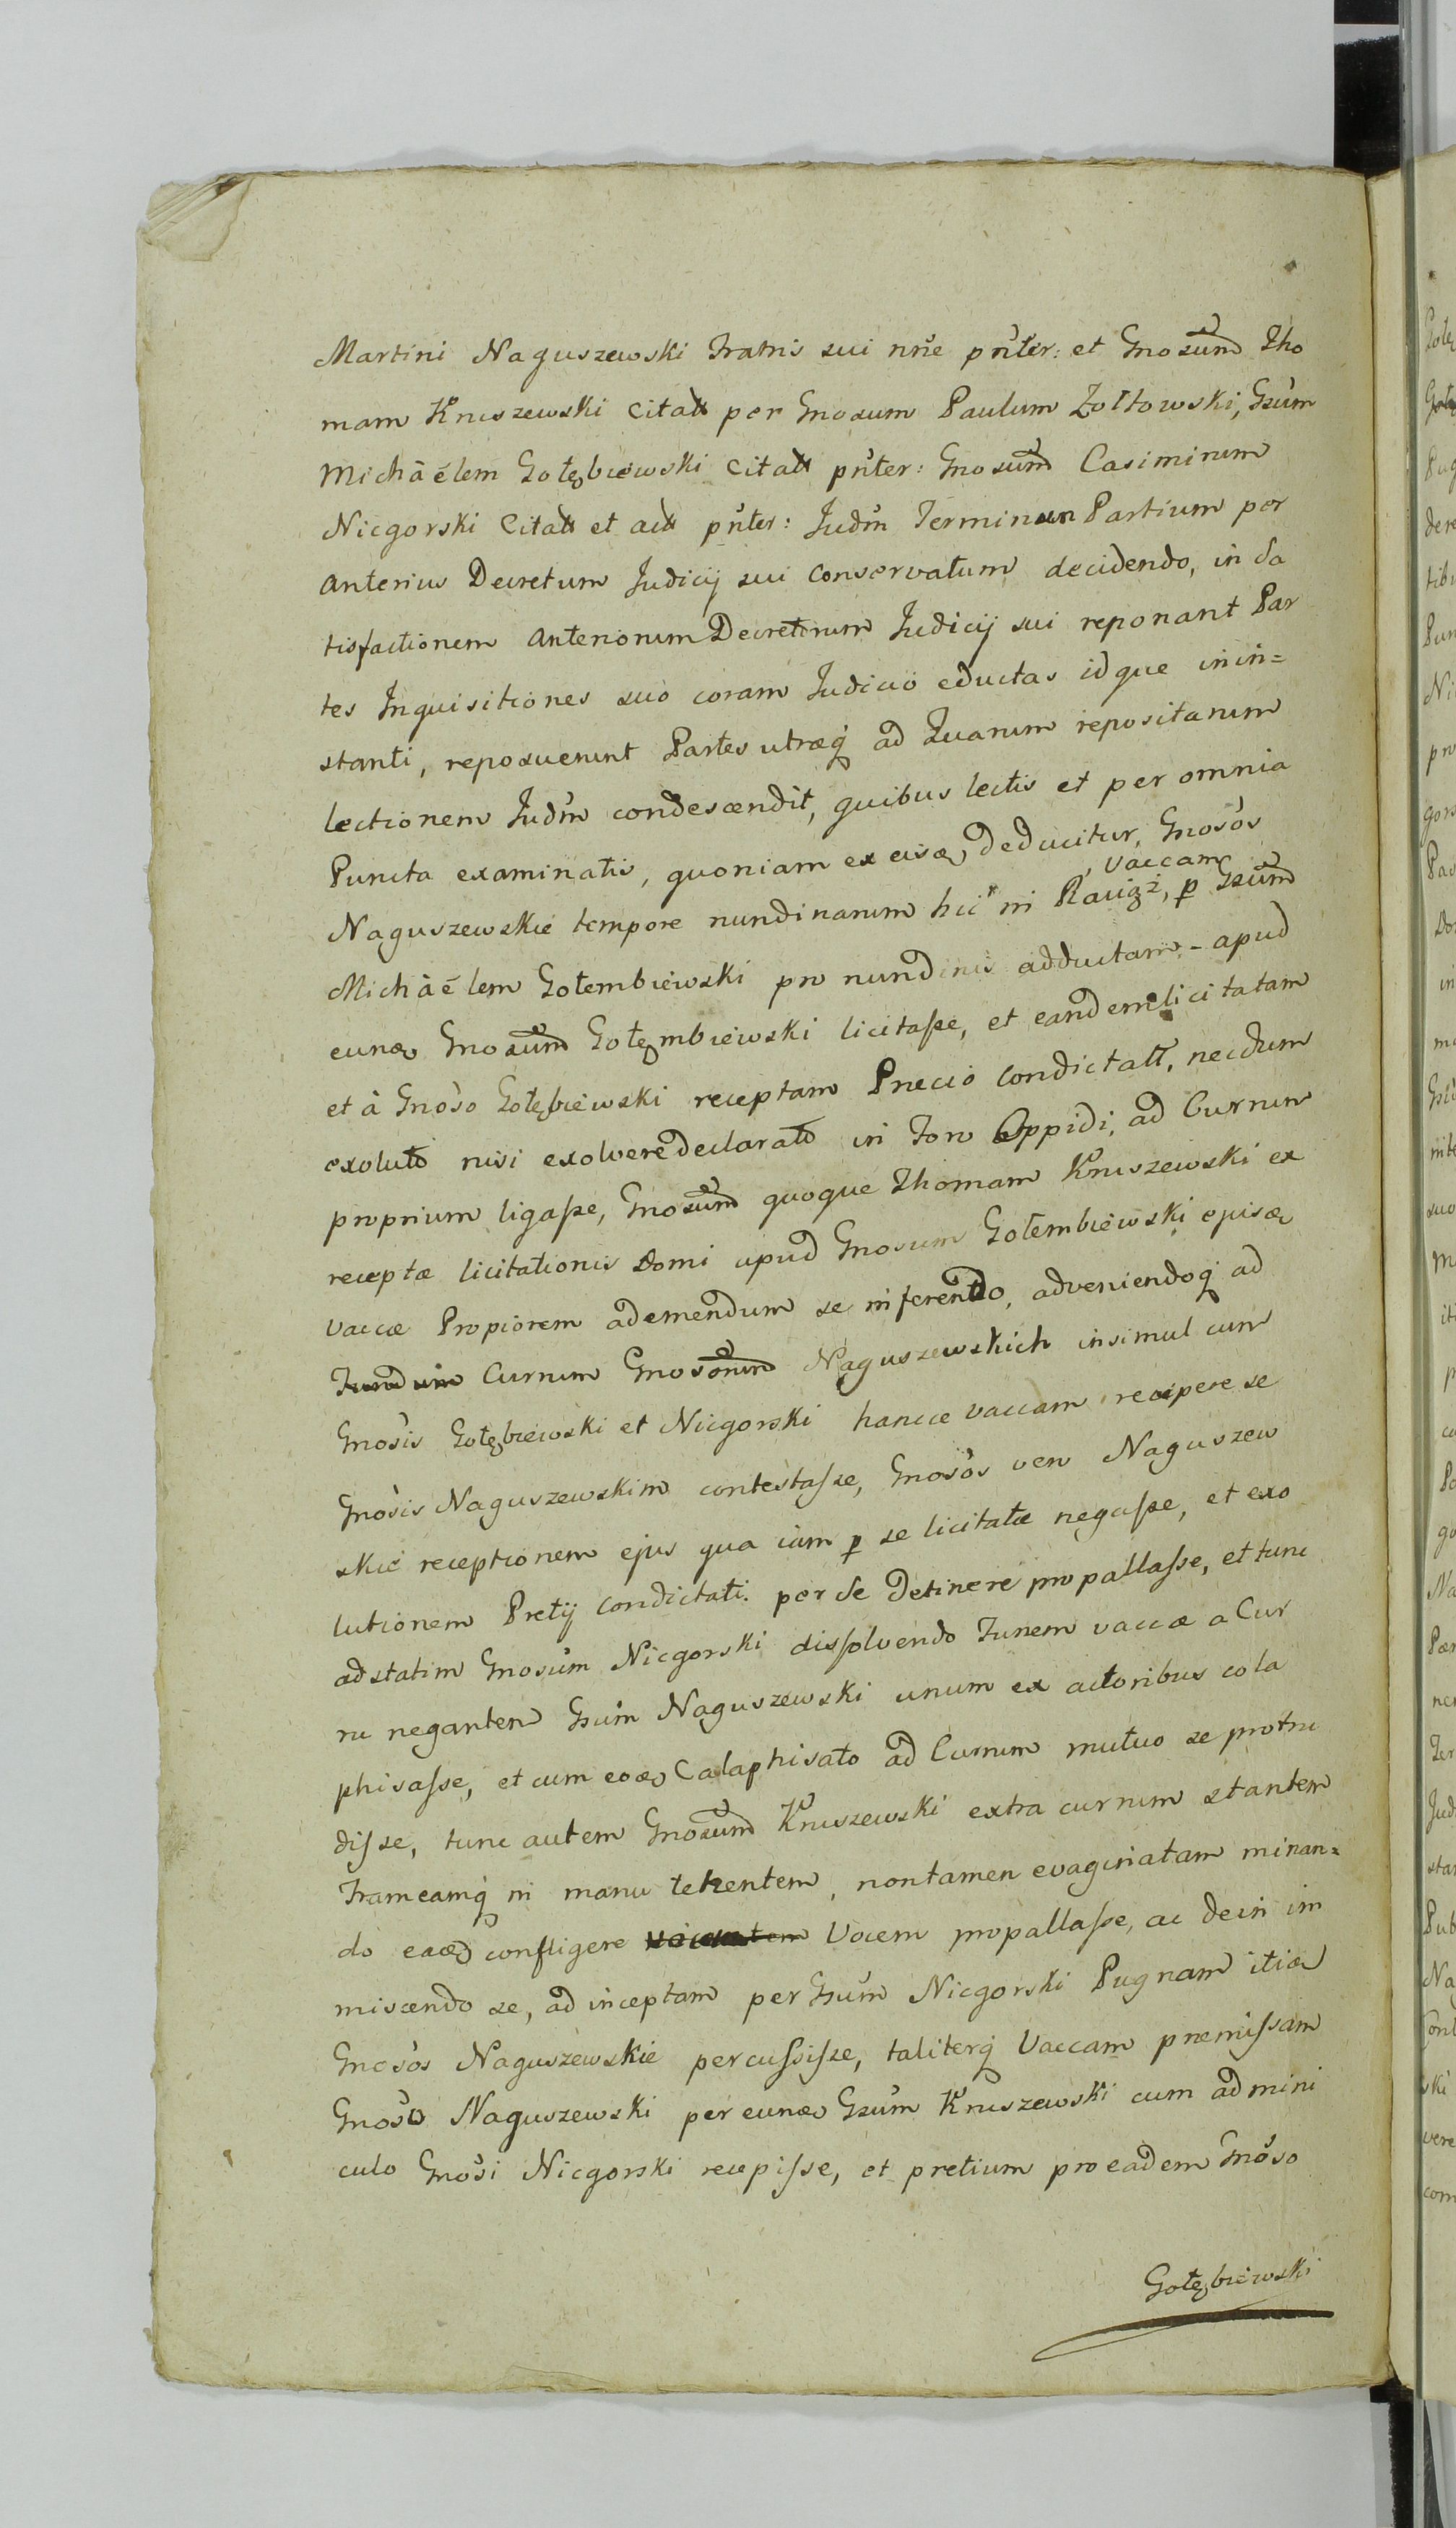 Martini Naguszewski Fratris sui nne pnter: et Gnosum Tho
mam Kruszewski Citatt per Gnosum Paulum Zołtowski, Gsum
Michàélem Gołębiewski Citatt pnter: Gnosum Casimirum
Nicgorski Citatt et actt pnter: Judm Terminum Partium per
anterius Decretum Judicij sui conservatum decidendo, in Sa
tisfactionem anteriorum Decretorum Judicij sui reponant Par
tes Inquisitiones suo coram Judicio eductas idque inin=
stanti, reposuerunt Partes utræq ad Quarum repositarum
lectionem Judm condescendit, quibus lectis et per omnia
Puncta examinatis, quoniam ex eisd deducitur, Gnosos
Naguszewskie tempore nundinarum hic in , vaccam p Gsum
Michàélem Gołembiewski pro nundinis adductam - apud
eund Gnosum Gołęmbiewski licitasse, et eandem licitatam
et à Gnoso Gołębiewski receptam Precio Condictatt, necdum
exoluto nisi exolvere declarato in Foro Oppidi, ad Currum
proprium ligasse, Gnosum quoque Thomam Kruszewski ex
receptæ licitationis Domi apud Gnosum Gołembiewski ejusd
vaccæ Propiorem ad emendum se inferendo, adveniendoq ad
Currum Gnosorum Naguszewskich insimul cum
Gnosis Gołębiewski et Nicgorski hancce vaccam recipere se
Gnosis Naguszewskim contestasse, Gnosos vero Naguszew
skie receptionem ejus qua iam p se licitatæ negasse, et exo
lutionem Pretij condictati. per Se Detinere propallasse, et tunc
adstatim Gnosum Nicgorski dissolvendo Funem vaccæ a Cur
ru negantem Gsum Naguszewski unum ex actoribus cola
phisasse, et cum eod Calaphisato ad Currum mutuo se protru
disse, tunc autem Gnosum Kruszewski extra currum stantem
Frameamq in manu tenentem, nontamen evaginatam minan=
do ead confligere Vocem propallasse, ac dein im
miscendo se, ad inceptam per Gsum Nicgorski Pugnam itid
Gnosos Naguszewskie percussisse, taliterq Vaccam premissam
Gnoso Naguszewski per eund Gsum Kruszewski cum admini
culo Gnosi Nicgorski recepisse, et pretium pro eadem Gnoso
Gołębiewski